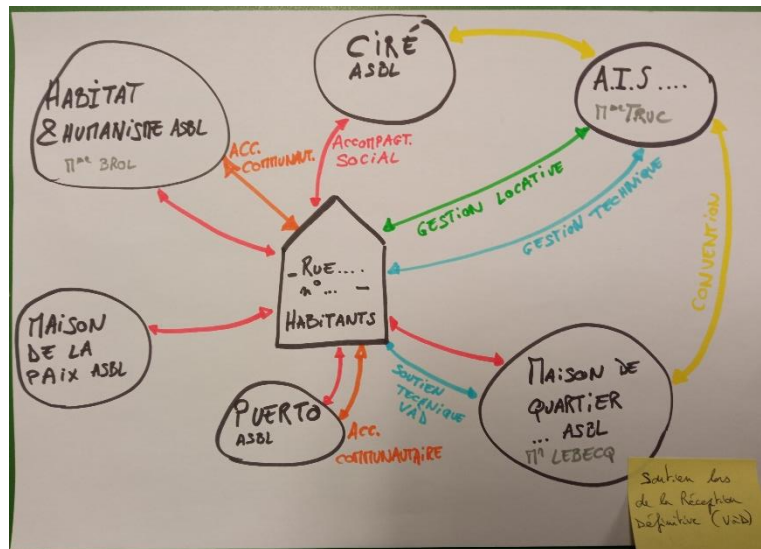 HABITAT
& HUMANISME ASBL
Mme BROL
CIRÉ
ASBL
A.I.S ....
Mme TRUC
ACC.
COMMUNAUT.
ACCOMPAGT.
SOCIAL
GESTION LOCATIVE
GESTION TECHNIQUE
CONVENTION
- RUE.....
n° ... -
HABITANTS
MAISON
DE LA
PAIX ASBL
PUERTO
ASBL
ACC.
COMMUNAUTAIRE
SOUTIEN
TECHNIQUE
VAD
MAISON DE
QUARTIER
... ASBL
Mr LEBECQ
Soutien lors
de la Réception
Définitive (VàD)